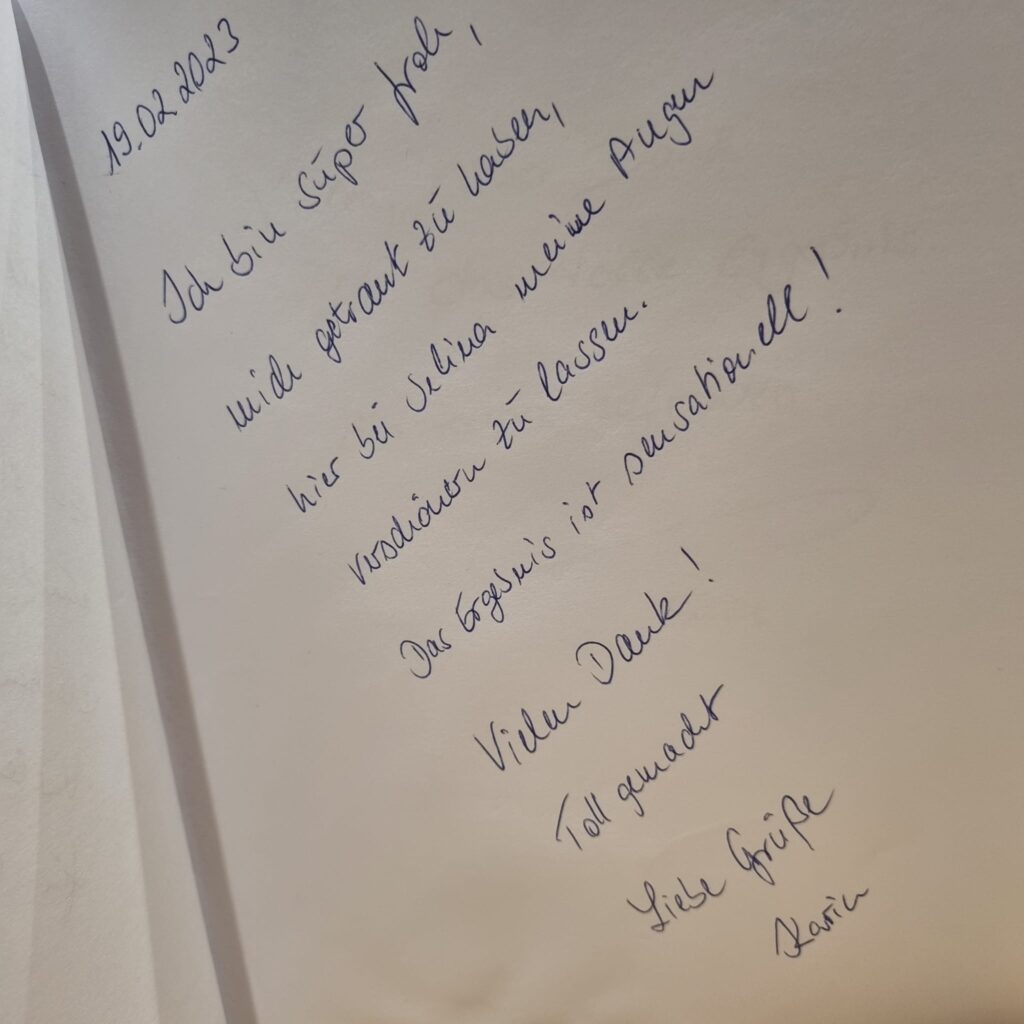 19.02.2023
Ich bin super froh,
mich getraut zu haben,
hier bei Selina meine Augen
verschönern zu lassen.
Das Ergebnis ist sensationell!
Vielen Dank!
Toll gemacht
Liebe Grüße
Karin